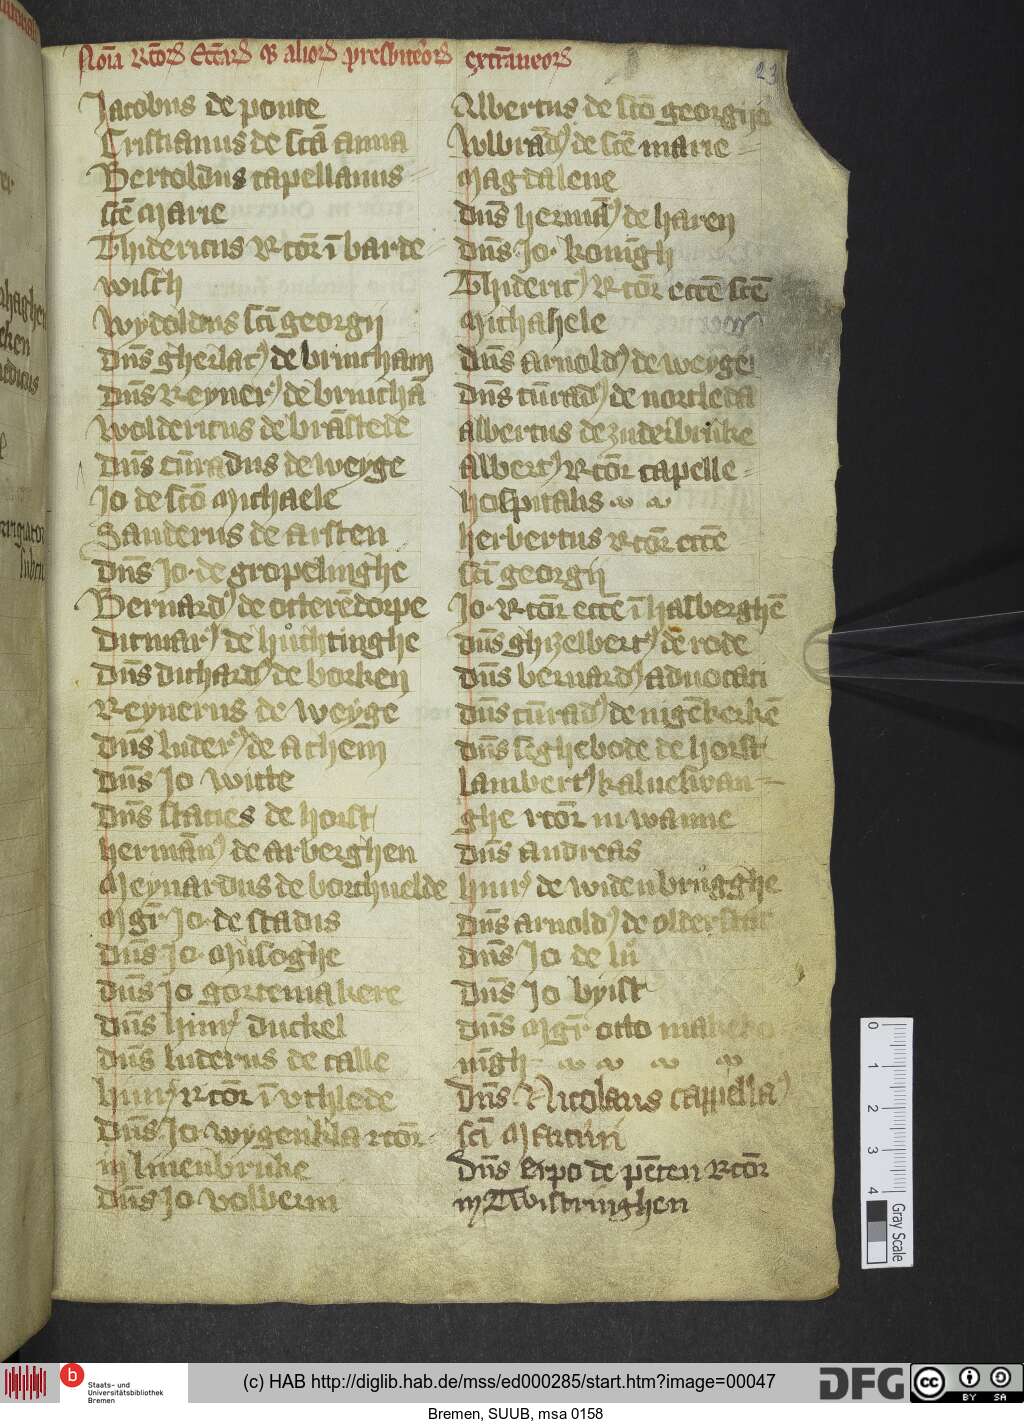 Noīa Rc̄orꝝ Ecc̄arꝝ & aliorꝝ presbiterorꝝ extraneorꝝ
23
Jacobus de ponte
Cristianus de scā anna
Bertoldus capellanus
scē Marie
Thidericus Rc̄or ī barde
wisch
Wydoldus scī georgij
Dn̄s gherlacꝰ de brincham
Dn̄s Reynerꝰ de brinchā
Woldericus de brāstede
Dn̄s cūradus de weyge
Jo de scō Michaele
Sanderus de arsten
Dn̄s Jo de gropelinghe
Bernardꝰ de otterēdorpe
Ditmarꝰ de huchtinghe
Dn̄s dichardꝰ de borken
Reynerus de weyge
Dn̄s luderꝰ de achem
Dn̄s Jo witte
Dn̄s staties de horst
hermān̄ꝰ de arberghen
Meynardus de borchuelde
Mgr̄ Jo de stadis
Dn̄s Jo Musoghe
Dn̄s Jo gortemakere
Dn̄s hinrꝰ duckel
Dn̄s luderus de calle
hinrꝰ Rc̄or ī vthlede
Dn̄s Jo wygenkla rc̄or
in linenbruke
Dn̄s Jo volbern
Albertus de scō georgijo
Wlbradꝰ de scē marie
Magdalene
Dn̄s hermān̄ꝰ de haren
Dn̄s Jo konīgh
Thidericꝰ Rc̄or ecc̄e scē
Michahele
Dn̄s arnoldꝰ de weyge
Dn̄s cūradꝰ de nortleda
albertus de zuderbruke
albertꝰ Rc̄or capelle
hospitalis
herbertus Rc̄or ecc̄e
scī georgij
Jo Rc̄or ecc̄e ī halberghē
Dn̄s ghizelbertꝰ de rode
Dn̄s bernardꝰ aduocati
Dn̄s cūradꝰ de nigēkerkē
Dn̄s seghebode de horst
lambertꝰ kalueswan
ghe rc̄or in wanne
Dn̄s andreas
hinrꝰ de widenbrugghe
Dn̄s arnoldꝰ de
Dn̄s Jo de lu
Dn̄s Jo byist
Dn̄s Mgr̄ otto
nīgh
Dn̄s Nicolaus cappellaꝰ
scī Martini
Dn̄s Erpo de pēten Rc̄or
in Twistringhen
0 1 2 3 4
Gray Scale
b
Staats- und
Universitätsbibliothek
Bremen
(c) HAB http://diglib.hab.de/mss/ed000285/start.htm?image=00047
DFG
cc BY SA
Bremen, SUUB, msa 0158